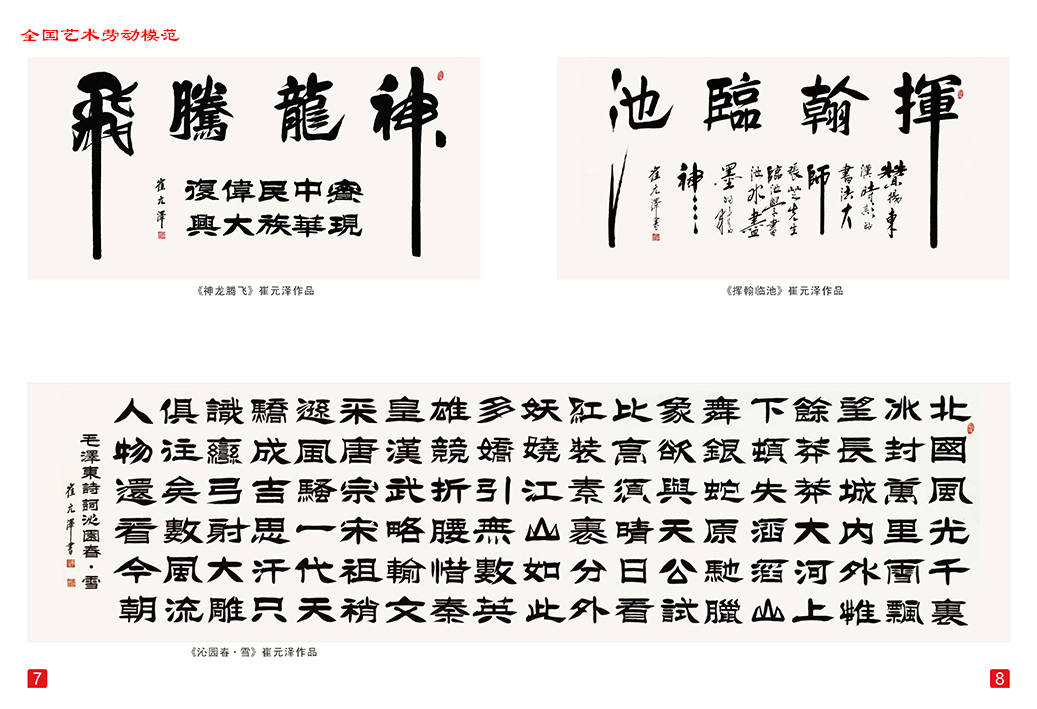 全国艺术劳动模范
神龍騰飛
實現
中華
民族
偉大
復興
崔元澤
《神龙腾飞》崔元泽作品
揮翰臨池
揚東
漢時期的
書法大
師
張芝先生
臨池學書
池水盡
墨的精
神
崔元澤書
《挥翰临池》崔元泽作品
北國風光千裏
冰封萬里雪飄
望長城内外惟
餘莽莽大河上
下頓失滔滔山
舞銀蛇原馳臘
象欲與天公試
比高須晴日看
紅裝素裹分外
妖嬈江山如此
多嬌引無數英
雄競折腰惜秦
皇漢武略輸文
采唐宗宋祖稍
遜風騷一代天
驕成吉思汗只
識彎弓射大雕
俱往矣數風流
人物還看今朝
毛澤東詩詞沁園春·雪
崔元澤書
《沁园春·雪》崔元泽作品
7
8